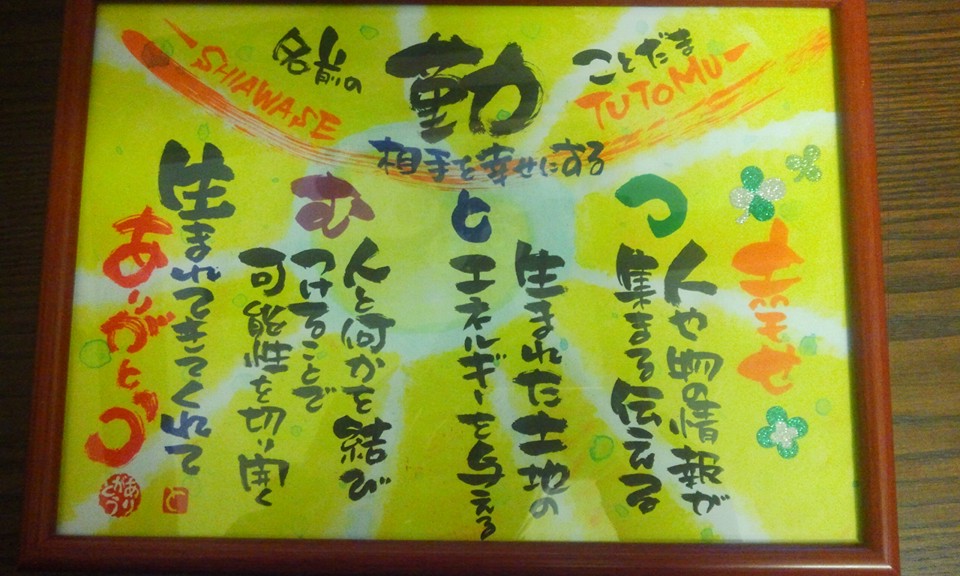 名前の
ことだま
勤
SHIAWASE
TUTOMU
相手を幸せにする
幸せ
つ
人や物の情報が
集まる伝える
と
生まれた土地の
エネルギーを与える
む
人と何かを結び
つけることで
可能性を切り開く
生まれてきてくれて
ありがとう
ありがとう